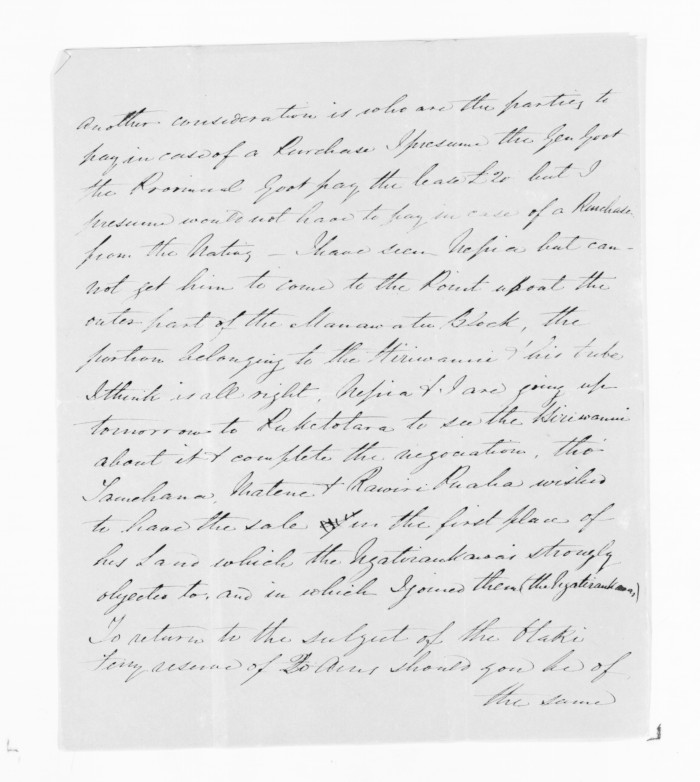 another consideration is who are the parties to
pay in case of a Purchase I presume the Gen Govt
the Provincial Govt pay the lease £20 but I
presume would not have to pay in case of a Purchase
from the Natives - I have seen Nepia but can-
not get him to come to the Point about the
outer part of the Manawatu Block, the
portion belonging to the Hiriwanui & his tribe
I think is all right, Nepia & I are going up
tomorrow to Puketotara to see the Hiriwanui
about it & complete the negociation, tho'
Tamehana, Matene & Rawiri Puaha wished
to have the sale in the first place of
his Land which the Ngatiraukawas strongly
objected to, and in which I joined them (the Ngatiraukawas)
To return to the subject of the Otaki
ferry reserve of 20 Acres should you be of
the same